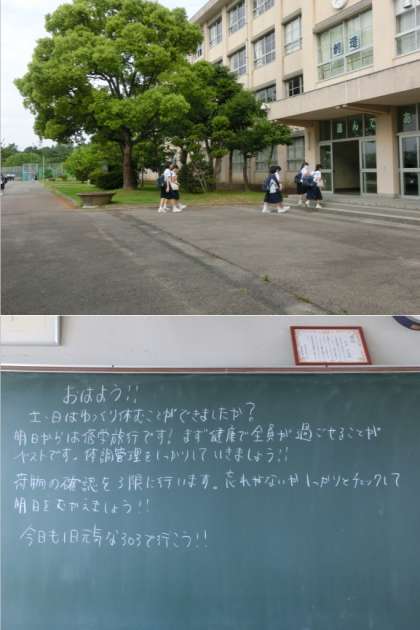 創造
おはよう!!
土、日はゆっくり休むことができましたか?
明日からは修学旅行です! まず健康で全員が過ごせることが
ベストです。体調管理をしっかりしていきましょう!!
荷物の確認を3限に行います。忘れがないかしっかりとチェックして
明日をむかえましょう!!
今日も1日元気な303で行こう!!